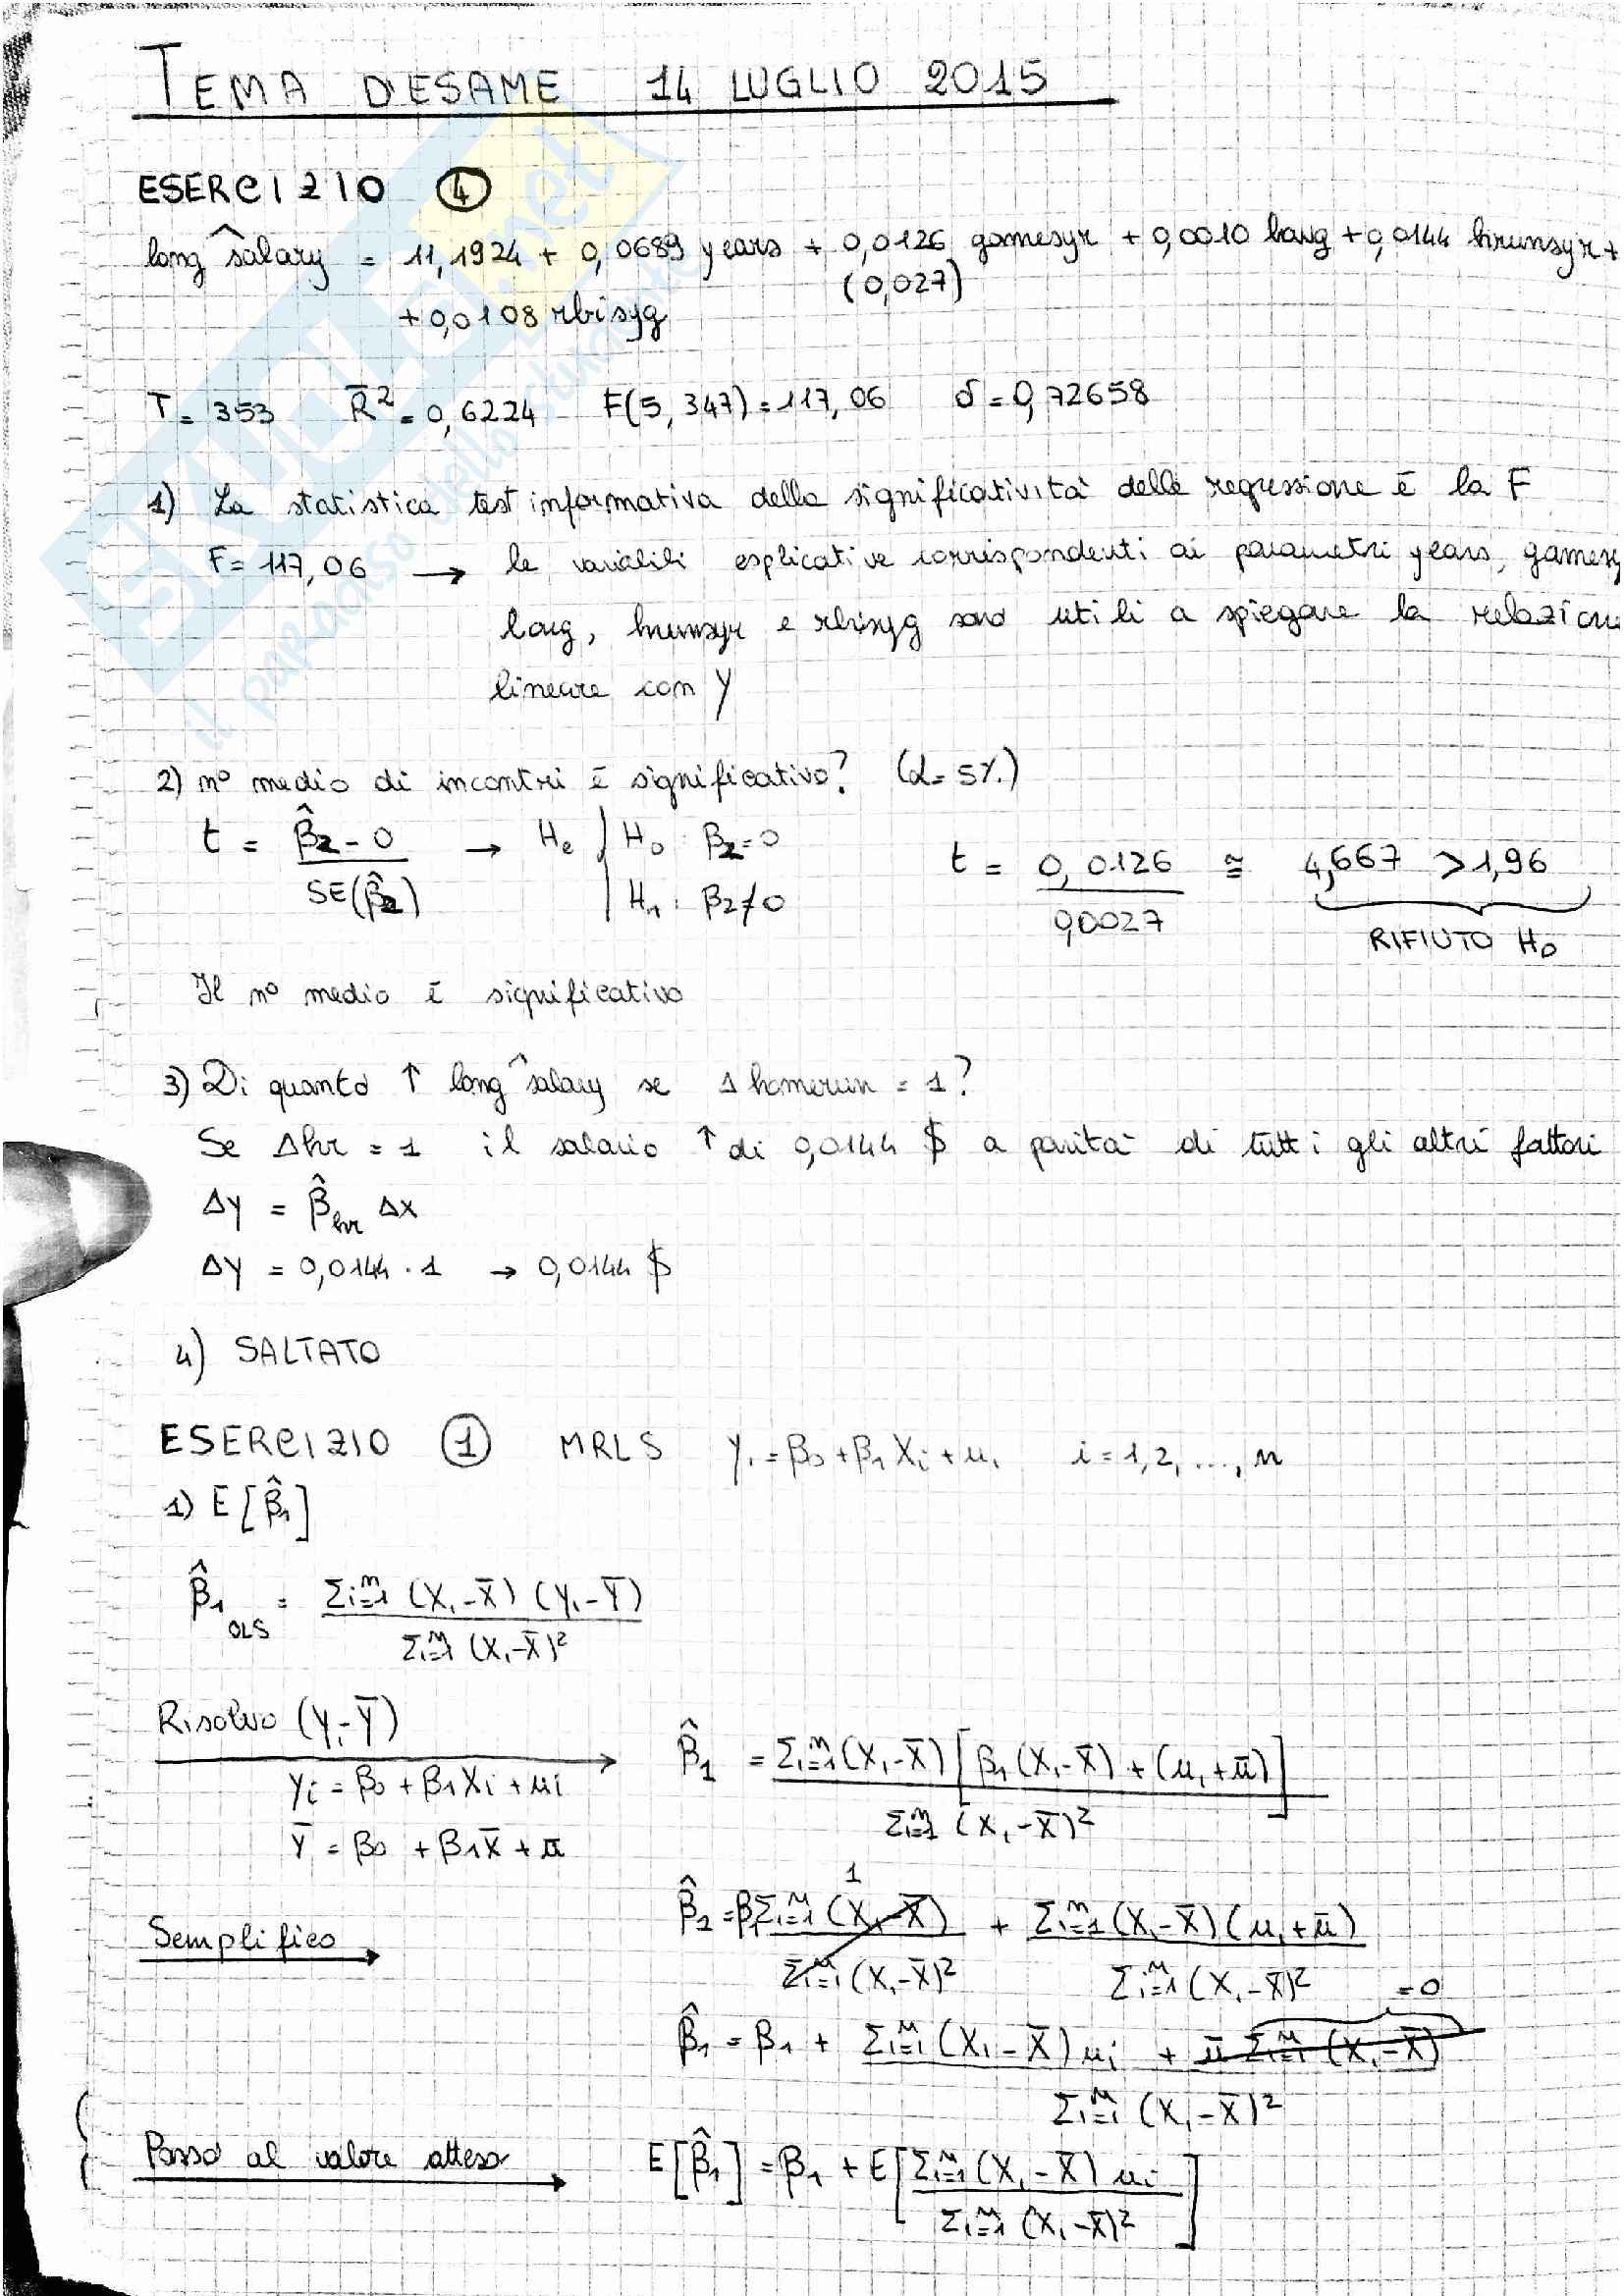 TEMA D'ESAME 14 LUGLIO 2015
ESERCIZIO 4
long salary^ = 11,1924 + 0,0689 years + 0,0126 gamesyr + 0,0010 bavg + 0,0144 hrunsyr +
(0,027)
+0,0108 rbisyg
T = 353 R̄² = 0,6224 F(5, 347) = 117,06 σ = 0,72658
1) La statistica test informativa della significatività della regressione è la F
F = 117,06 → le variabili esplicative corrispondenti ai parametri years, gamesy
bavg, hrunsyr e rbisyg sono utili a spiegare la relazione
lineare con Y
2) n° medio di incontri è significativo? (α = 5%.)
t = β̂2 - 0 / SE(β̂2) → He | H0 : β2 = 0 t = 0,0126 / 0,0027 ≅ 4,667 > 1,96
H1 : β2 ≠ 0 RIFIUTO H0
Il n° medio è significativo
3) Di quanto ↑ long salary^ se Δ homerun = 1?
Se Δhr = 1 il salario ↑ di 0,0144 $ a parità di tutti gli altri fattori
Δy = β̂hr Δx
Δy = 0,0144 · 1 → 0,0144 $
4) SALTATO
ESERCIZIO 1 MRLS yi = β0 + β1 Xi + ui i = 1,2, ..., n
1) E[β̂1]
β̂1 OLS = Σi=1^n (Xi - X̄) (Yi - Ȳ) / Σi=1^n (Xi - X̄)²
Risolvo (Yi - Ȳ) → β̂1 = Σi=1^n (Xi - X̄) [β1 (Xi - X̄) + (ui + ū)] / Σi=1^n (Xi - X̄)²
yi = β0 + β1Xi + ui
Ȳ = β0 + β1X̄ + ū
Semplifico → β̂1 = β1 Σi=1^n (Xi - X̄) / Σi=1^n (Xi - X̄)² + Σi=1^n (Xi - X̄) (ui + ū) / Σi=1^n (Xi - X̄)²
1
β̂1 = β1 + Σi=1^n (Xi - X̄) ui + ū Σi=1^n (Xi - X̄) / Σi=1^n (Xi - X̄)²
= 0
Passo al valore atteso → E[β̂1] = β1 + E[Σi=1^n (Xi - X̄) ui / Σi=1^n (Xi - X̄)²]